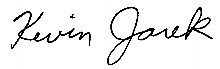 Kevin Jarek